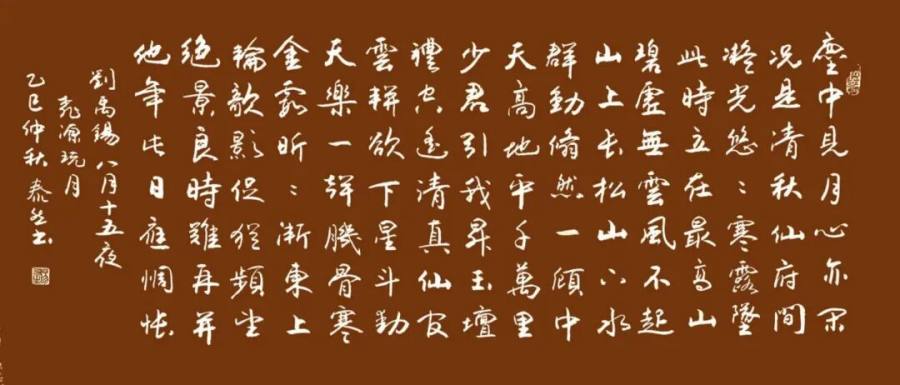 塵中見月心亦閑
況是清秋仙府間
凝光悠〻寒露墜
此時立在最高山
碧虛無雲風不起
山上長松山下水
群動翛然一顧中
天高地平千萬里
少君引我昇玉壇
禮空遙清真仙官
雲軿欲下星斗動
天樂一聲肌骨寒
金霞昕〻漸東上
輪欹影促猶頻望
絕景良時難再并
他年此日應惆悵
劉禹錫八月十五夜
桃源玩月
乙巳仲秋泰然书